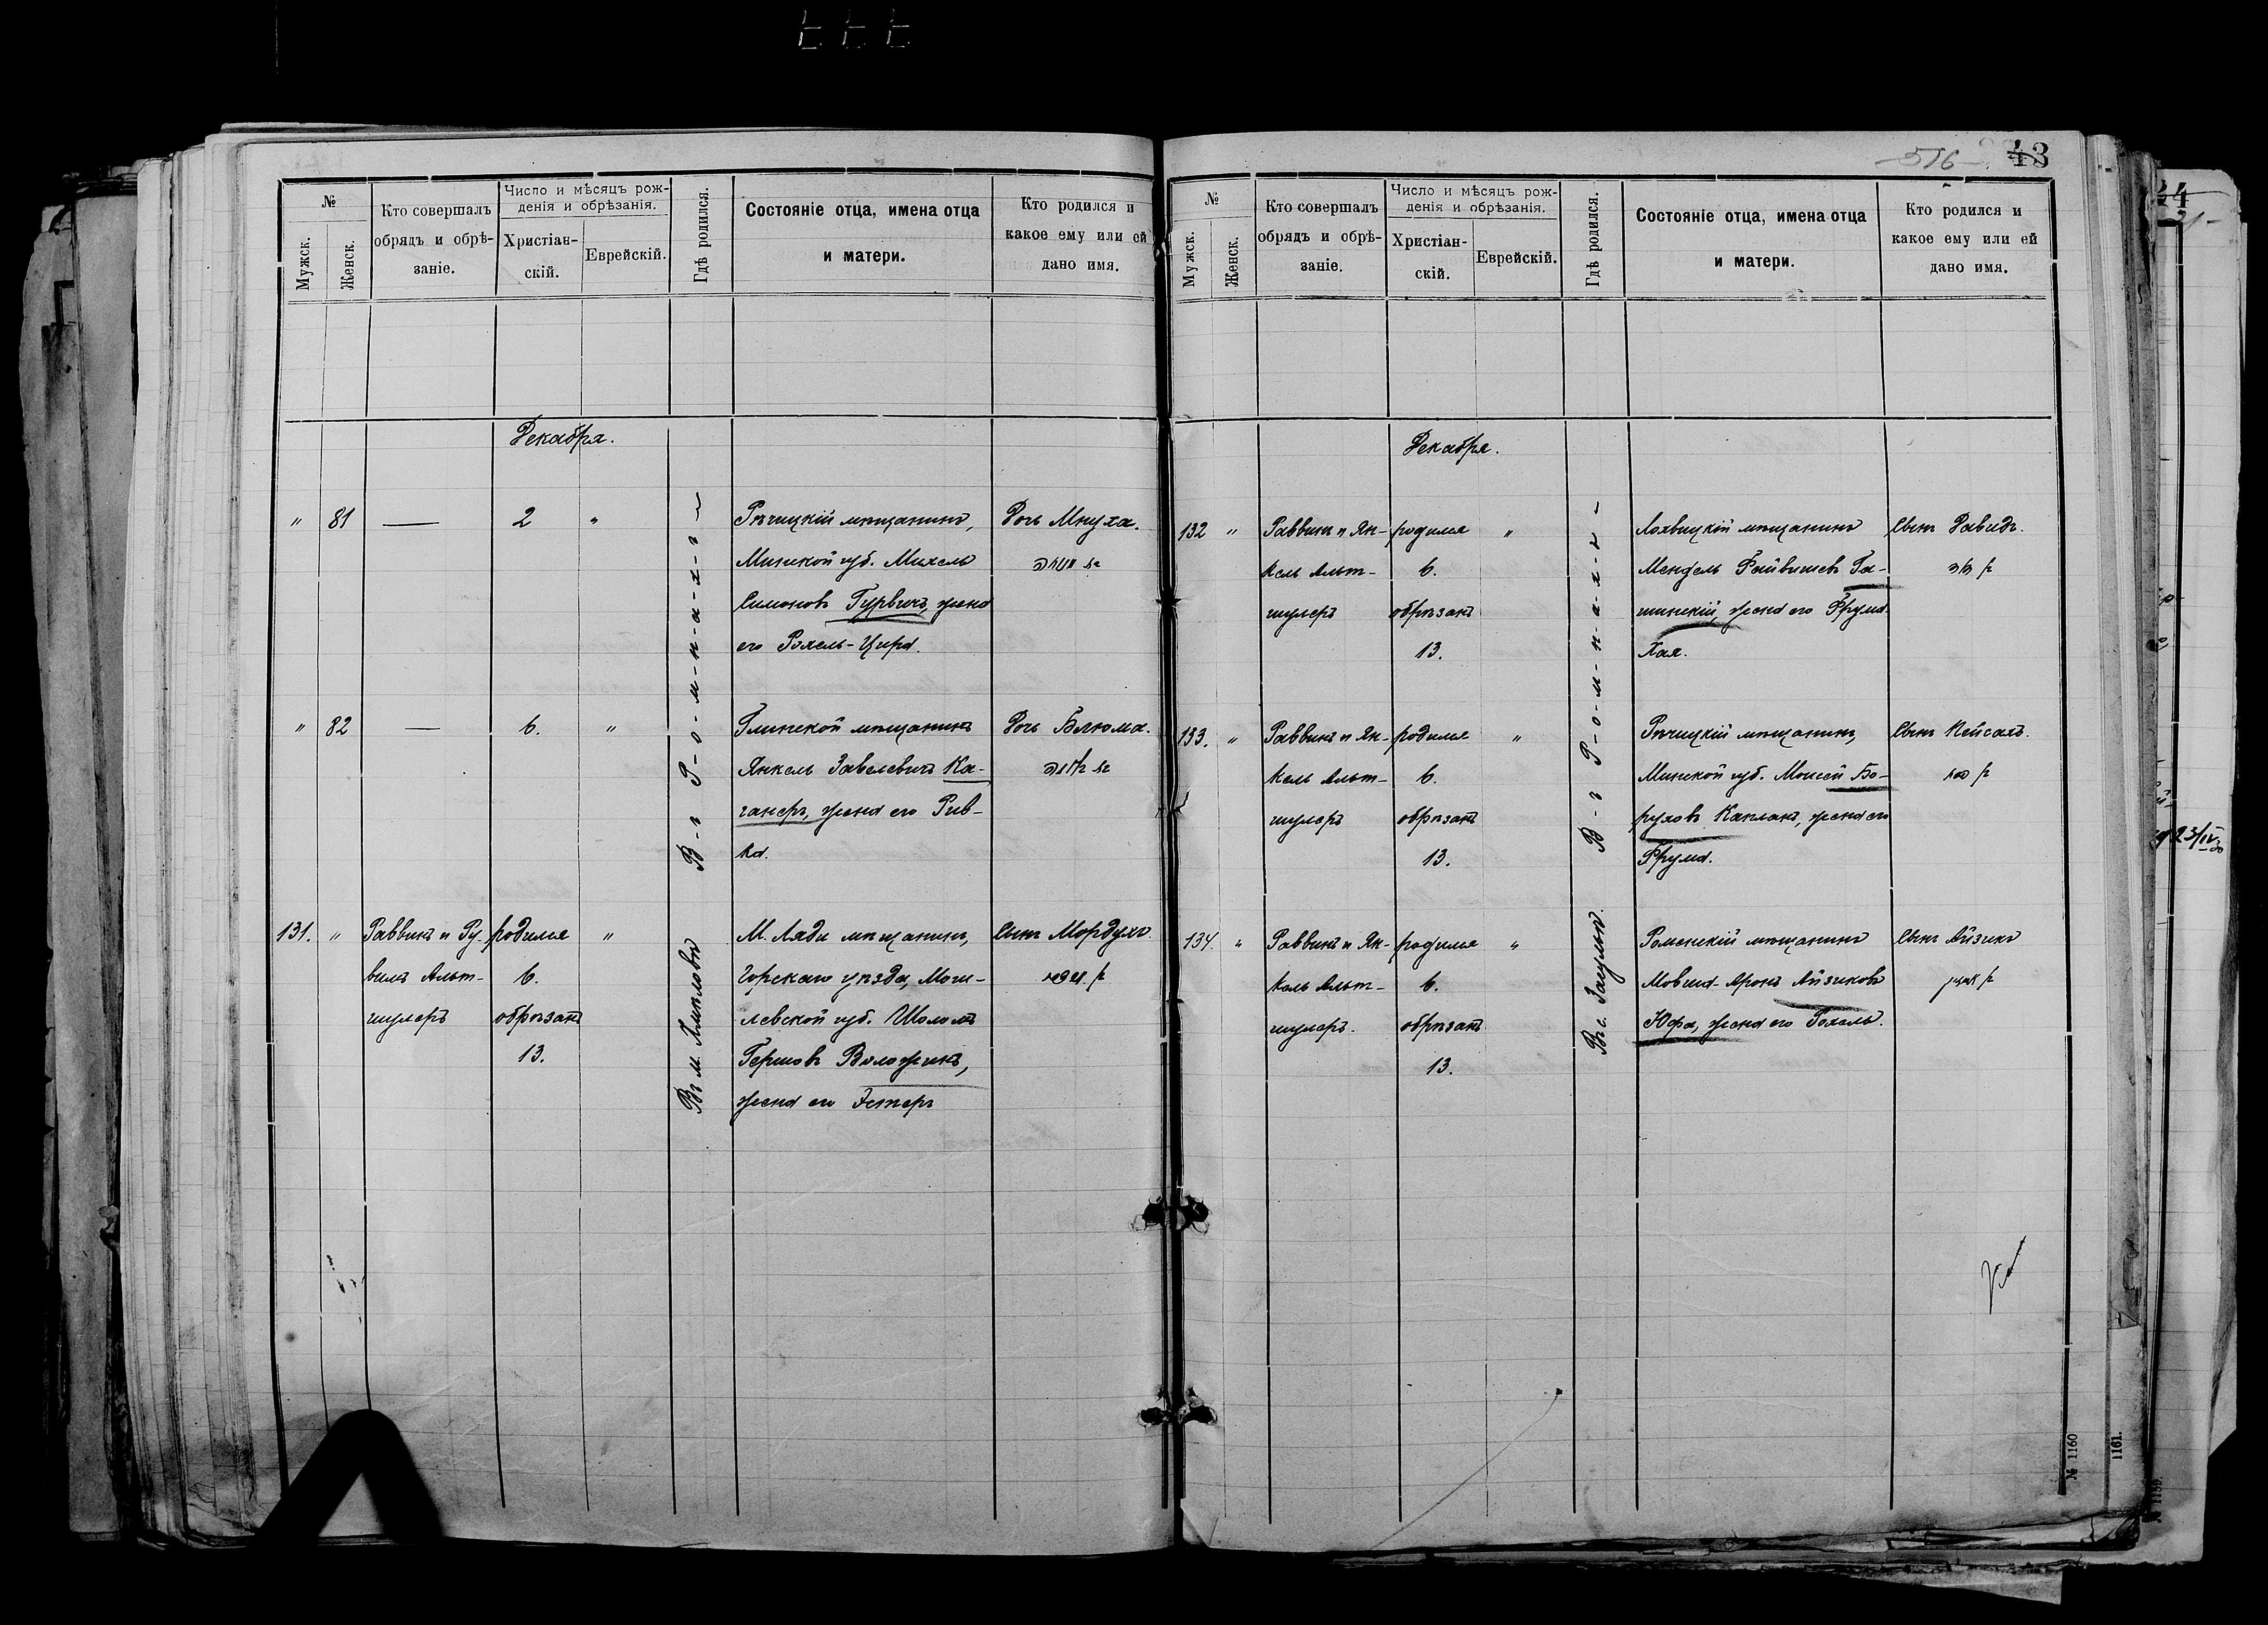 №
Мужск.
Женск.
Кто совершалъ
обрядъ и обрѣ-
заніе.
Число и мѣсяцъ рож-
денія и обрѣзанія.
Христіан-
скій.
Еврейскій.
Гдѣ родился.
Состояніе отца, имена отца
и матери.
Кто родился и
какое ему или ей
дано имя.
Декабря.
" 81 — 2 "
Рѣчицкій мѣщанинъ,
Минской губ. Михель
Симоновъ Гурвичъ, жена
его Рохель-Цира.
Дочь Мнуха.
В-ъ Р-о-м-н-а-х-ъ
" 82 — 6. "
Глинской мѣщанинъ
Янкель Завелевичъ Ка-
ганеръ, жена его Рив-
ка.
Дочь Блюма.
131. "
Раввинъ и Ру-
вимъ Альт-
шулеръ
родился
6.
обрѣзанъ
13.
"
Въ м.
М. Ляди мѣщанинъ,
Горскаго уѣзда, Моги-
левской губ. Шоломъ
Гершовъ Воложинъ,
жена его Эстеръ
Сынъ Мордухъ
516
43
№
Мужск.
Женск.
Кто совершалъ
обрядъ и обрѣ-
заніе.
Число и мѣсяцъ рож-
денія и обрѣзанія.
Христіан-
скій.
Еврейскій.
Гдѣ родился.
Состояніе отца, имена отца
и матери.
Кто родился и
какое ему или ей
дано имя.
Декабря.
132 "
Раввинъ и Ян-
кель Альт-
шулеръ
родился
6.
обрѣзанъ
13.
"
В-ъ Р-о-м-н-а-х-ъ
Лохвицкій мѣщанинъ
Мендель Файвишевъ Га-
шинскій, жена его Фрума
Хая.
Сынъ Давидъ.
133. "
Раввинъ и Ян-
кель Альт-
шулеръ
родился
6.
обрѣзанъ
13.
"
Рѣчицкій мѣщанинъ,
Минской губ. Моисей Бо-
руховъ Капланъ, жена его
Фрума.
Сынъ Пейсахъ.
134. "
Раввинъ и Ян-
кель Альт-
шулеръ.
родился
6.
обрѣзанъ
13.
"
Въ с. Засульѣ.
Роменскій мѣщанинъ
Мовша-Аронъ Айзиковъ
Юфа, жена его Рохель.
Сынъ Айзикъ
№ 1160
1161.